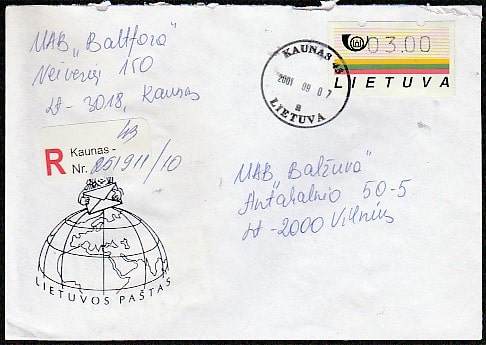 UAB „Baltfora"
Veiverių 150
Lt-3018, Kaunas
03.00
LIETUVA
KAUNAS 43
2001 09 07
a
LIETUVA
43
R Kaunas -
Nr. 251911/10
LIETUVOS PAŠTAS
UAB „Balžuva"
Antakalnio 50-5
Lt-2000 Vilnius